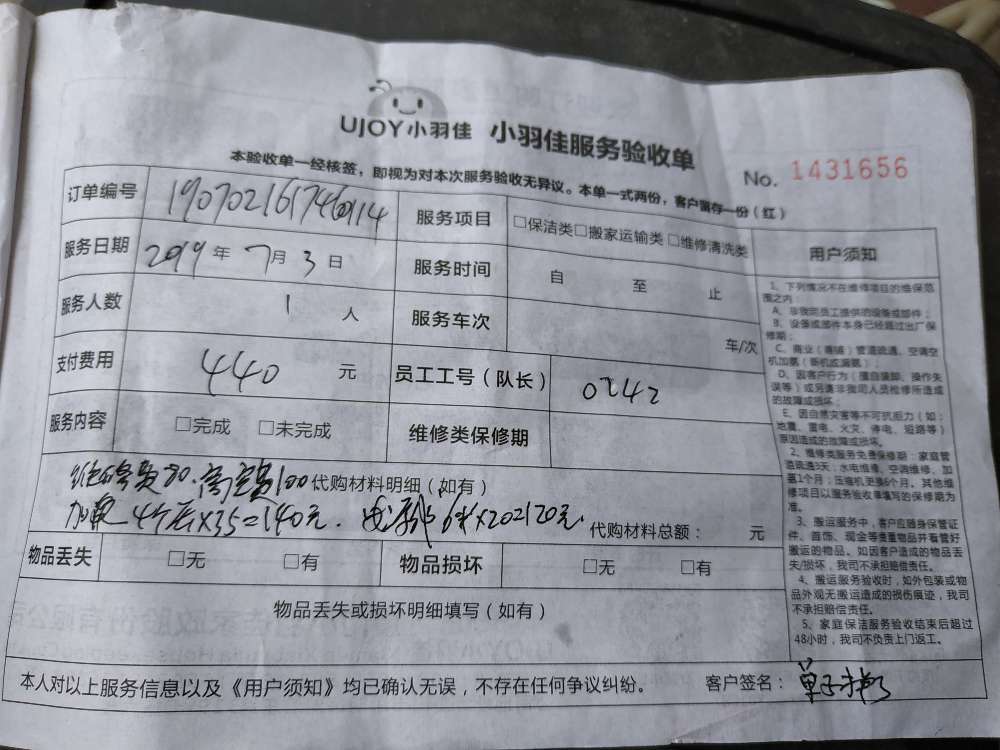 UJOY小羽佳 小羽佳服务验收单
No. 1431656
本验收单一经核签，即视为对本次服务验收无异议。本单一式两份，客户留存一份（红）
订单编号
服务项目 □保洁类□搬家运输类□维修清洗类
服务日期 2019年7月3日
服务时间 自 至 止
服务人数 1人
服务车次 车/次
支付费用 440 元
员工工号（队长） 0242
服务内容 □完成 □未完成
维修类保修期
80. 100 代购材料明细（如有）
X35=140元. 代购材料总额： 元
物品丢失 □无 □有
物品损坏 □无 □有
物品丢失或损坏明细填写（如有）
本人对以上服务信息以及《用户须知》均已确认无误，不存在任何争议纠纷。 客户签名：
用户须知
1、下列情况不在维修项目的维保范
围之内：
A、非我司员工提供的设备或部件；
B、设备或部件本身已经超过出厂保
修期；
C、商业（赛磋）管道疏通、空调空
机加氨（新机或漏氨）；
D、因客户行为（擅自装卸、操作失
误等）或另请非我司人员检修所造成
的故障或损坏；
E、因自然灾害等不可抗拒力（如：
地震、雷电、火灾、停电、短路等）
原因造成的故障或损坏。
2、维修类服务免费保修期：家庭管
道疏通3天；水电维修、空调维修、加
氨1个月；压缩机更换6个月。其他维
修项目以服务验收单填写的保修期为
准。
3、搬运服务中，客户应随身保管证
件、首饰、现金等贵重物品并看管好
搬运的物品。如因客户造成的物品丢
失/损坏，我司不承担赔偿责任。
4、搬运服务验收时，如外包装或物
品外观无搬运造成的损伤痕迹，我司
不承担赔偿责任。
5、家庭保洁服务验收结束后超过
48小时，我司不负责上门返工。